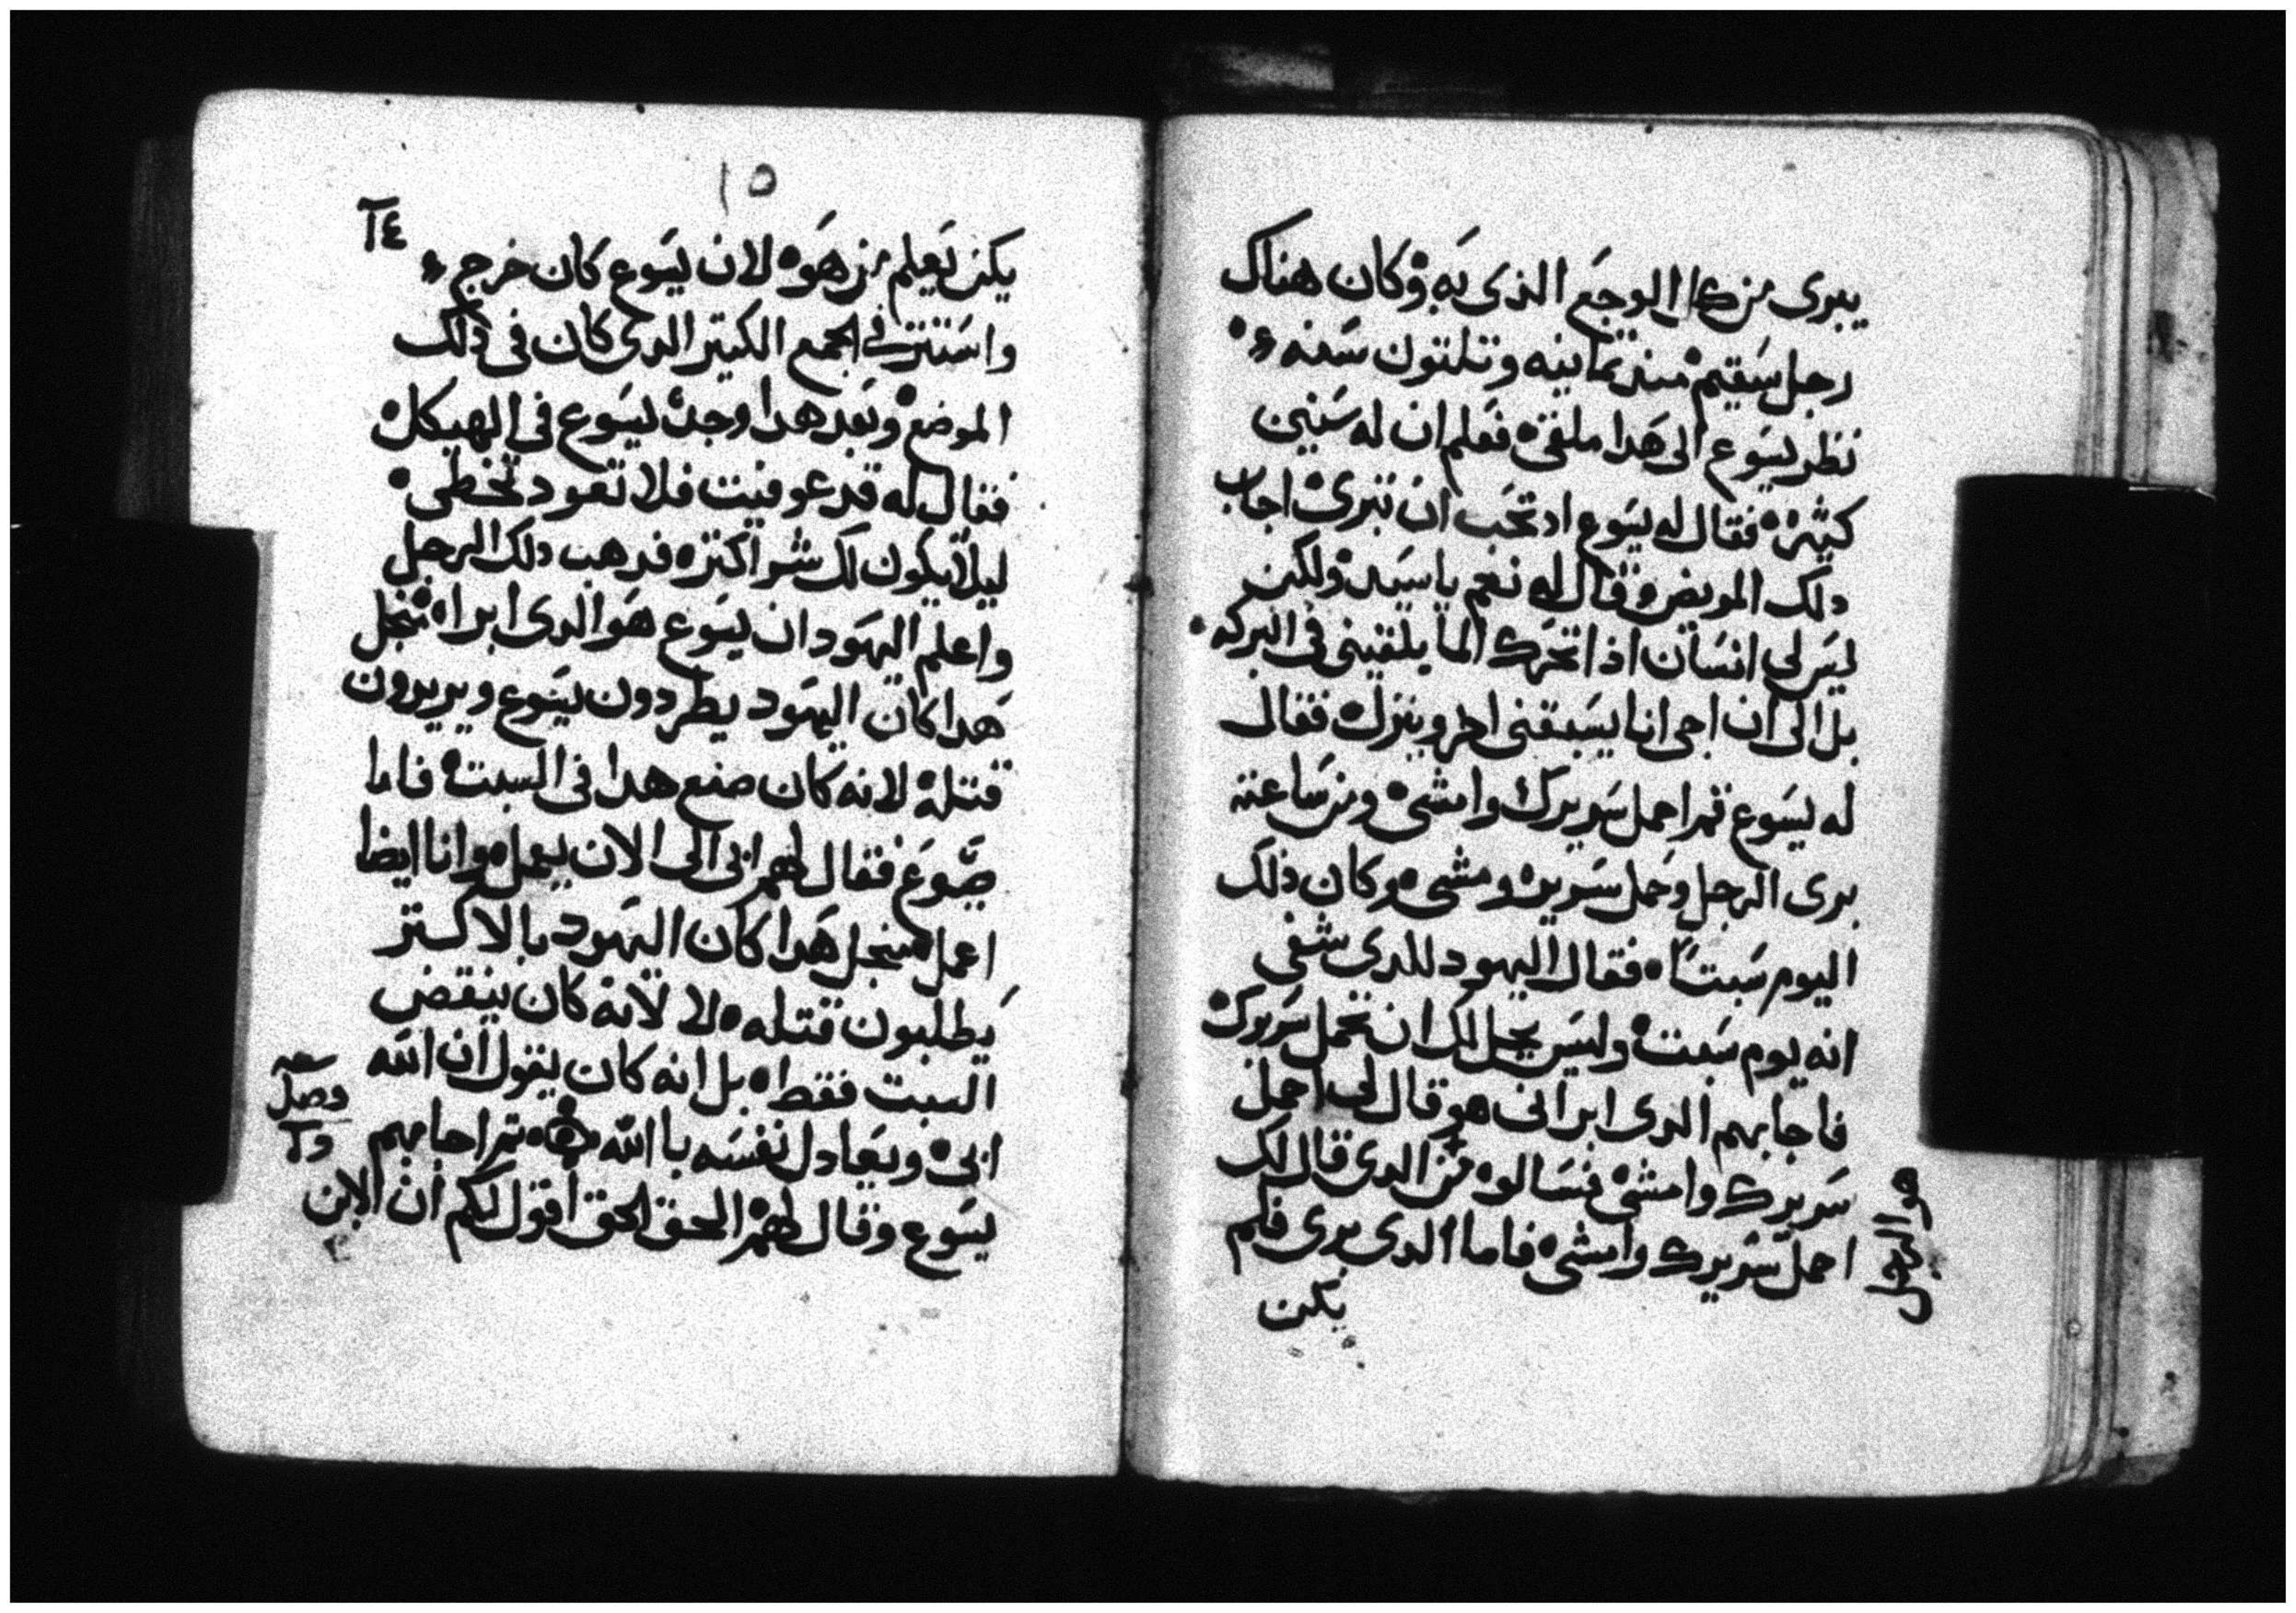 يبرى من كل الوجع الذى به وكان هناك
رجل سقيم منذ تمانيه وتلتون سنه
نظر يسوع الى هدا ملقى فعلم ان له سنين
كثيره فقال له يسوع اتحب ان تبرى اجاب
دلك المريض وقال له نعم يا سيد ولكن
ليس لى انسان اذا تحرك الما يلقينى فى البركه
بل الى ان اجى انا يسبقنى اخر وينزل فقال
له يسوع قم احمل سريرك وامشى ومن ساعته
برى الرجل وحمل سريره ومشى وكان ذلك
اليوم سبتا فقال اليهود للدى شفى
انه يوم سبت وليس يحل لك ان تحمل سريرك
فاجابهم الدى ابرانى هو قال لى احمل
سريرك وامشى فسالوه من الدى قال لك
هو الرجل
احمل سريرك وامشى فاما الدى برى فلم
يكن
١٥
٢٤
يكن يعلم من هو لان يسوع كان خرج
واستتر فى الجمع الكتير الدى كان فى ذلك
الموضع وبعد هدا وجده يسوع فى الهيكل
فقال له قد عوفيت فلا تعود تخطى
ليلا يكون لك شر اكتر فدهب دلك الرجل
واعلم اليهود ان يسوع هو الدى ابراه منجل
هدا كان اليهود يطردون يسوع ويريدون
قتله لانه كان صنع هدا فى السبت فاما
يسوع فقال لهم ابى الى الان يعمل وانا ايضا
اعمل منجل هدا كان اليهود بالاكتر
يطلبون قتله لا لانه كان ينقض
السبت فقط بل انه كان يقول ان الله
ابى ويعادل نفسه بالله تم اجابهم
فصل
يسوع وقال لهم الحق الحق اقول لكم ان الابن